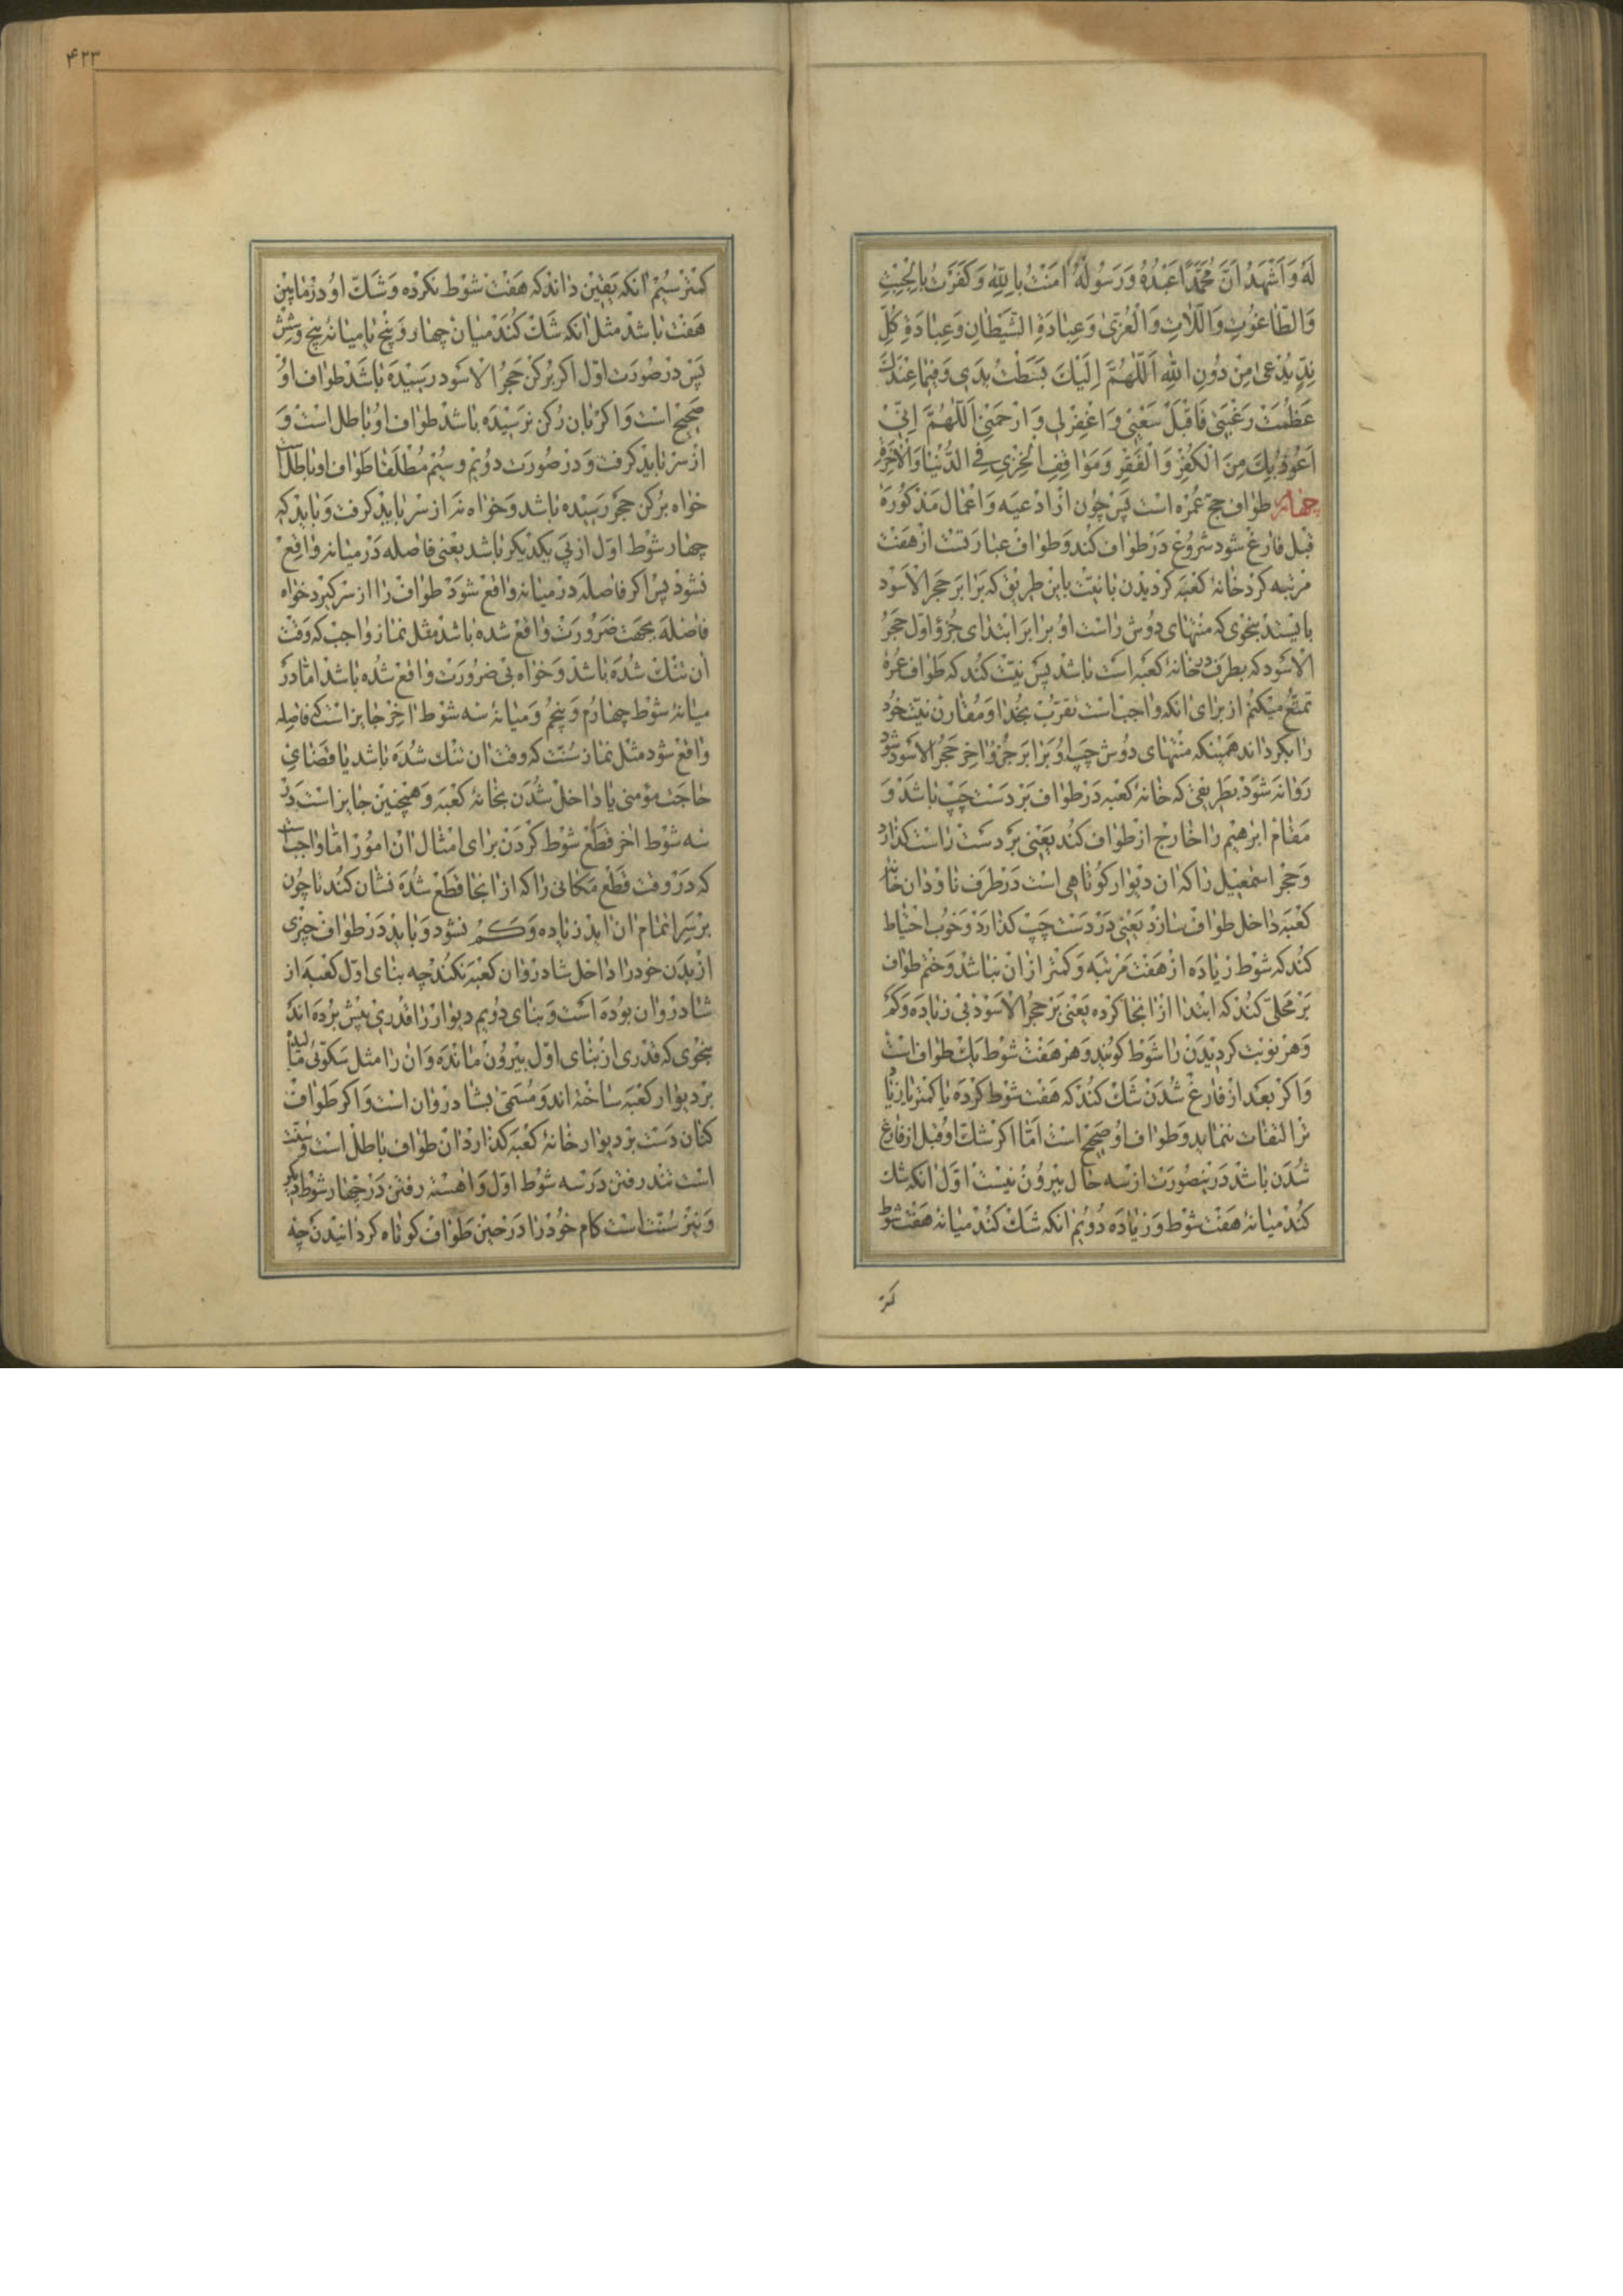 لَهُ وَاَشْهَدُ اَنَّ مُحَمَّدًا عَبْدُهُ وَرَسُولُهُ امَنْتُ بِاللّهِ وَكَفَرْتُ بِالْجِبْتِ
وَالطّاغُوتِ وَاللّاتِ وَالْعُزّى وَعِبادَةِ الشَّيْطانِ وَعِبادَةِ كُلِّ
نِدٍّ يُدْعى مِنْ دُونِ اللّهِ اَللّهُمَّ اِلَيْكَ بَسَطْتُ يَدى وَفيما عِنْدَكَ
عَظُمَتْ رَغْبَتى فَاقْبَلْ سَعْيى وَاغْفِرْلى وَارْحَمْنى اَللّهُمَّ اِنّى
اَعُوذُ بِكَ مِنَ الْكُفْرِ وَالْفَقْرِ وَمَواقِفِ الْخِزْىِ فِى الدُّنْيا وَالْاخِرَةِ
چهارم طواف حج عمره است پس چون از ادعيه و اعمال مذكوره
قبل فارغ شود شروع در طواف كند و طواف عبارتست از هفت
مرتبه كرد خانهٔ كعبه كرديدن با نيّت باين طريق كه برابر حجر الاسود
بايستد بنحوى كه منتهاى دوش راست او برابر ابتداى جزو اوّل حجر
الاسود كه بطرف در خانهٔ كعبه است باشد پس نيّت كند كه طواف عمرهٔ
تمتّع ميكنم از براى انكه واجب است تقرّب بخدا و مقارن نيّت خود
را بكرداند همينكه منتهاى دوش چپ او برابر جزو اخر حجر الاسود شود
روانه شود بطريقى كه خانهٔ كعبه در طواف بر دست چپ باشد و
مقام ابرهيم را خارج از طواف كند يعنى بر دست راست كذارد
و حجر اسمعيل را كه ان ديوار كوتاهى است در طرف ناودان خانهٔ
كعبه داخل طواف سازد يعنى در دست چپ كذارد و خوب احتياط
كند كه شوط زياده از هفت مرتبه و كمتر از ان نباشد و ختم طواف
بر محلّى كند كه ابتدا از انجا كرده يعنى بر حجر الاسود بى زياده و كم
و هر نوبت كرديدن را شوط كويند و هر هفت شوط يك طواف است
و اكر بعد از فارغ شدن شك كند كه هفت شوط كرده يا كمتر يا زيا
تر التفات ننمايد و طواف او صحيح است امّا اكر شكّ او قبل از فارغ
شدن باشد درينصورت از سه حال بيرون نيست اوّل انكه شك
كند ميانهٔ هفت شوط و زياده دويم انكه شك كند ميانهٔ هفت شوط
كمتر
۴۲۳
كمتر سيّم انكه يقين داند كه هفت شوط نكرده و شكّ او در مابين
هفت باشد مثل انكه شك كند ميان چهار و پنج يا ميانهٔ پنج و شش
پس در صورت اوّل اكر بركن حجر الاسود رسيده باشد طواف او
صحيح است و اكر بان ركن نرسيده باشد طواف او باطل است و
از سر بايد كرفت و در صورت دويم و سيّم مطلقا طواف او باطل است
خواه بركن حجر رسيده باشد و خواه نه از سر بايد كرفت و بايد كه
چهار شوط اوّل از پى يكديكر باشد يعنى فاصله در ميانه واقع
نشود پس اكر فاصله در ميانه واقع شود طواف را از سر كيرد خواه
فاصله بجهت ضرورت واقع شده باشد مثل نماز واجب كه وقت
ان تنك شده باشد و خواه بى ضرورت واقع شده باشد امّا در
ميانهٔ شوط چهارم و پنجم و ميانهٔ سه شوط اخر جايز است كه فاصله
واقع شود مثل نماز سنّت كه وقت ان تنك شده باشد يا قضاى
حاجت مؤمنى يا داخل شدن بخانهٔ كعبه و همچنين جايز است در
سه شوط اخر قطع شوط كردن براى امثال ان امور امّا واجب است
كه در وقت قطع مكانى را كه از انجا قطع شده نشان كند تا چون
بر سر اتمام ان ايد زياده و كم نشود و بايد در طواف چيزى
از بدن خود را داخل شادروان كعبه نكند چه بناى اوّل كعبه از
شادروان بوده است و بناى دويم ديوار را قدرى پيش برده اند
بنحوى كه قدرى از بناى اوّل بيرون مانده و ان را مثل سكّوئى
بر ديوار كعبه ساخته اند و مسمّى بشادروان است و اكر طواف
كنان دست بر ديوار خانهٔ كعبه كذارد ان طواف باطل است و سنّت
است تند رفتن در سه شوط اوّل و اهسته رفتن در چهار شوط ديكر
و نيز سنّت است كام خود را در حين طواف كوتاه كردانيدن چه